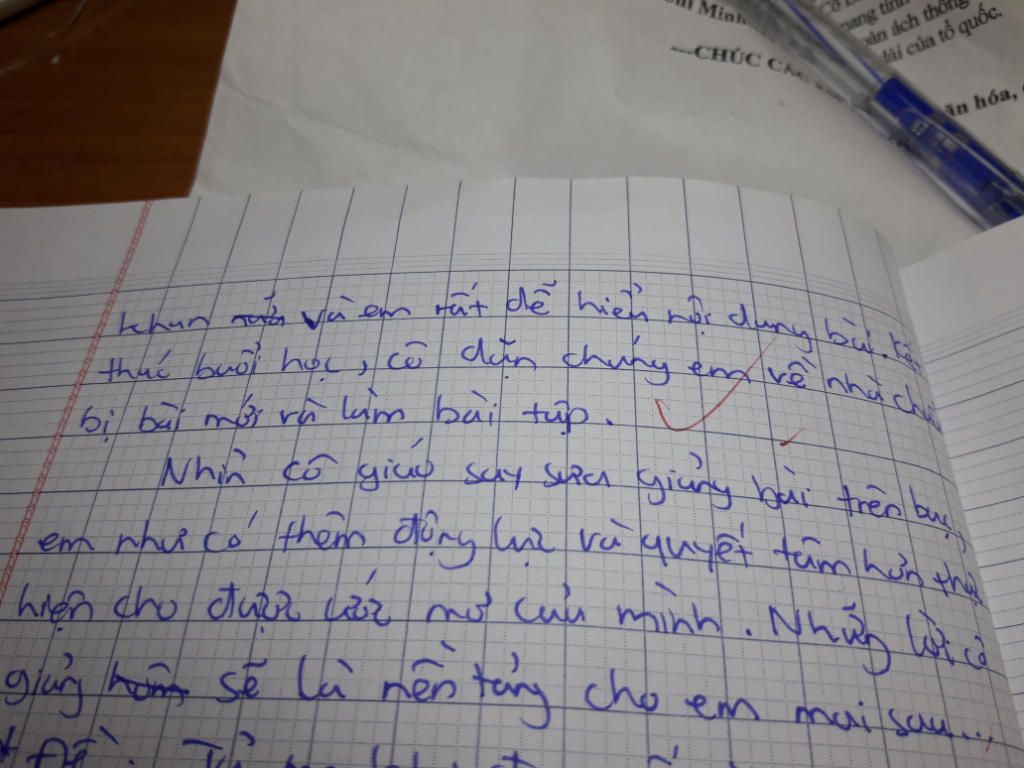 ần ách thống
tài của tổ quốc.
---CHÚC CÁC
ăn hóa,
khăn và em rất dễ hiểu nội dung bài. Kết
thúc buổi học, cô dặn chúng em về nhà
bị bài mới và làm bài tập.
Nhìn cô giáo say sưa giảng bài trên bục,
em như có thêm động lực và quyết tâm hơn thực
hiện cho được ước mơ của mình. Những lời cô
giảng sẽ là nền tảng cho em mai sau...
* Đề: